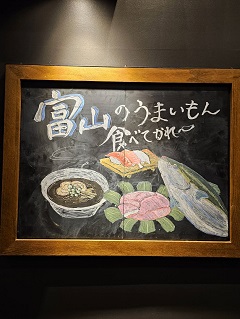 富山のうまいもん
食べてかれ～